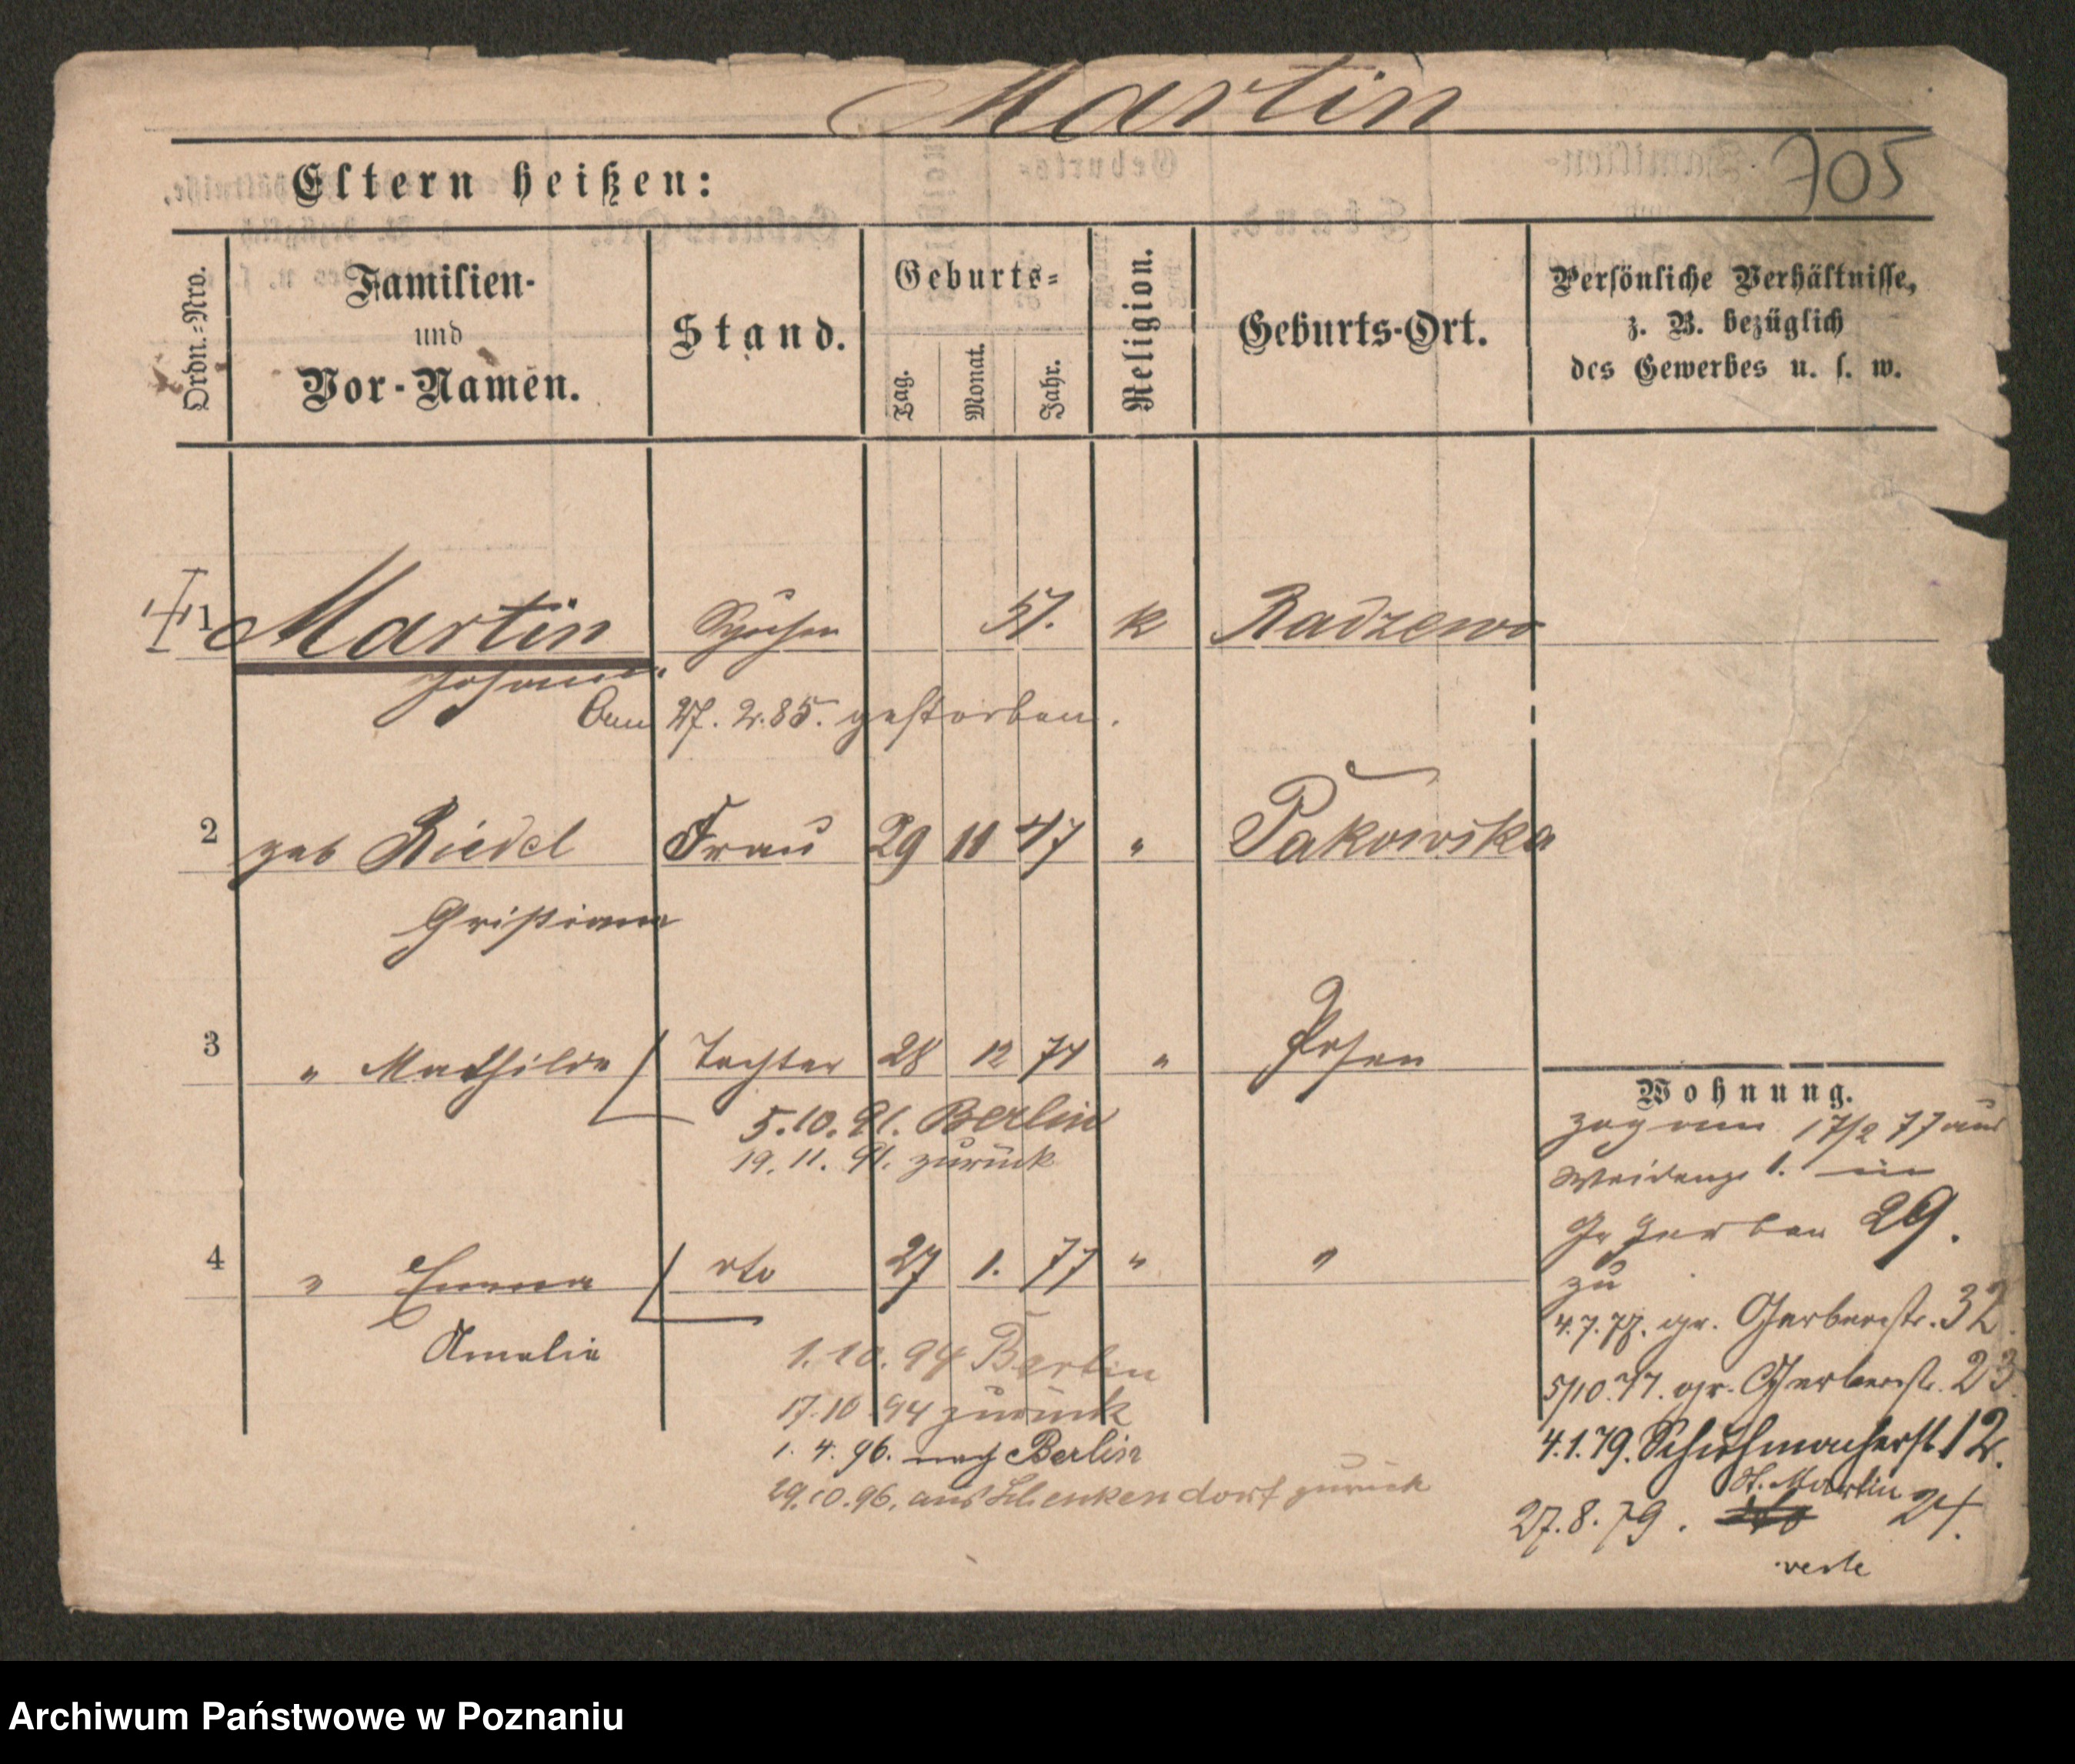 Martin
705
Eltern heißen:
Ordn.=Nro.
Familien-
und
Vor-Namen.
Stand.
Geburts=
Tag.
Monat.
Jahr.
Religion.
Geburts-Ort.
Persönliche Verhältnisse,
z. B. bezüglich
des Gewerbes u. s. w.
1 Martin 51. k Radzewo
Johann
Am 27. 2. 85. gestorben.
2 geb Riedel Frau 29 11 47 " Pakowska
Christiane
3 " Mathilde Tochter 28 12 74 " Posen
5.10.91. Berlin
19.11.91. zurück
4 " Emma dto 27 1. 77 " "
Amalie
1.10.94 Berlin
17.10.94 zurück
1. 4. 96. nach Berlin
29.10.96. aus Schenkendorf zurück
Wohnung.
zog am 17/2 77 aus
Weideng 1. in
Gr Gerber 29.
zu
4.7.77. gr. Gerberstr. 32.
5/10.77. gr. Gerberstr. 23.
4.1.79. Schuhmacherst 12.
St. Martin
27.8.79. 24.
verte
Archiwum Państwowe w Poznaniu